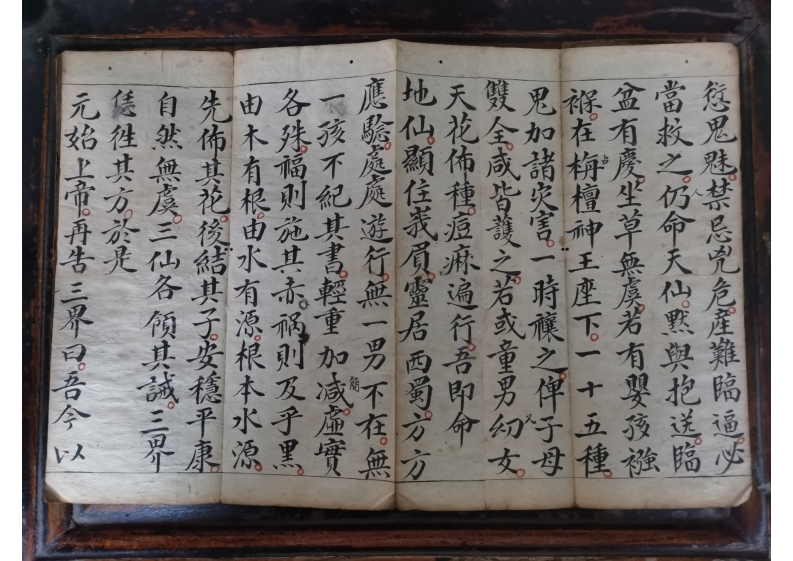 愆鬼魅禁忌兇危產難臨逼必
人
當救之仍命天仙黙與抱送臨
盆有慶坐草無虞若有嬰孩襁
褓在栴檀神王座下一十五種
占
鬼加諸灾害一時禳之俾子母
又
雙全咸皆護之若或童男幼女
天花佈種痘痳遍行吾即命
地仙顯住峩眉靈居西蜀方方
應驗處處遊行無一男不在無
一孩不紀其書輕重加減虛實
簡
各殊福則施其赤禍則及乎黑
由木有根由水有源根本水源
先佈其花後結其子安穩平康
自然無虞三仙各領其誡三界
恁徃其方於是
元始上帝再告三界曰吾今以